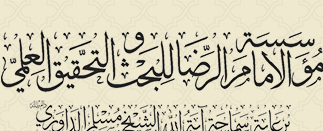 مؤسسة الإمام الرضا للبحث والتحقيق العلمي
برعاية سماحة آية الله الشيخ مسلم الداوري